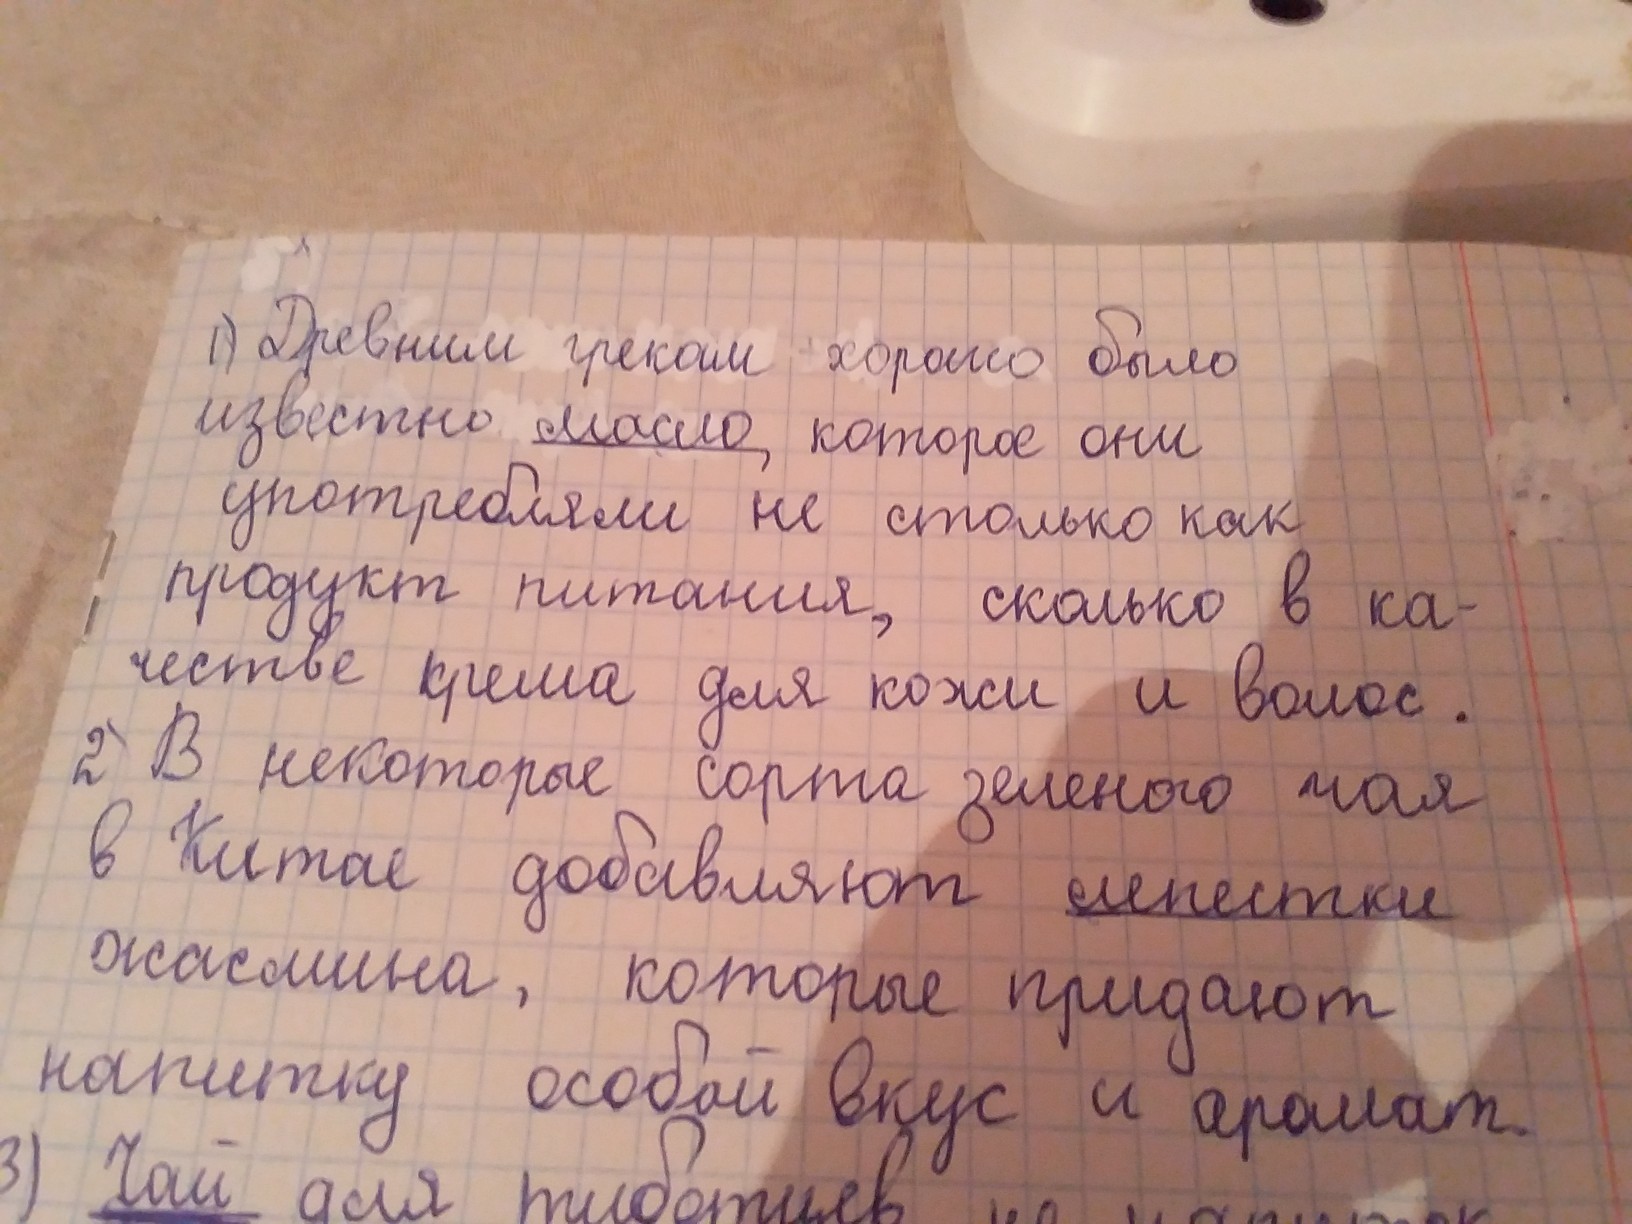 1) Древним грекам хорошо было
известно масло, которое они
употребляли не столько как
продукт питания, сколько в ка-
честве крема для кожи и волос.
2) В некоторые сорта зеленого чая
в Китае добавляют лепестки
жасмина, которые придают
напитку особой вкус и аромат.
3) Чай для тибетцев не напиток